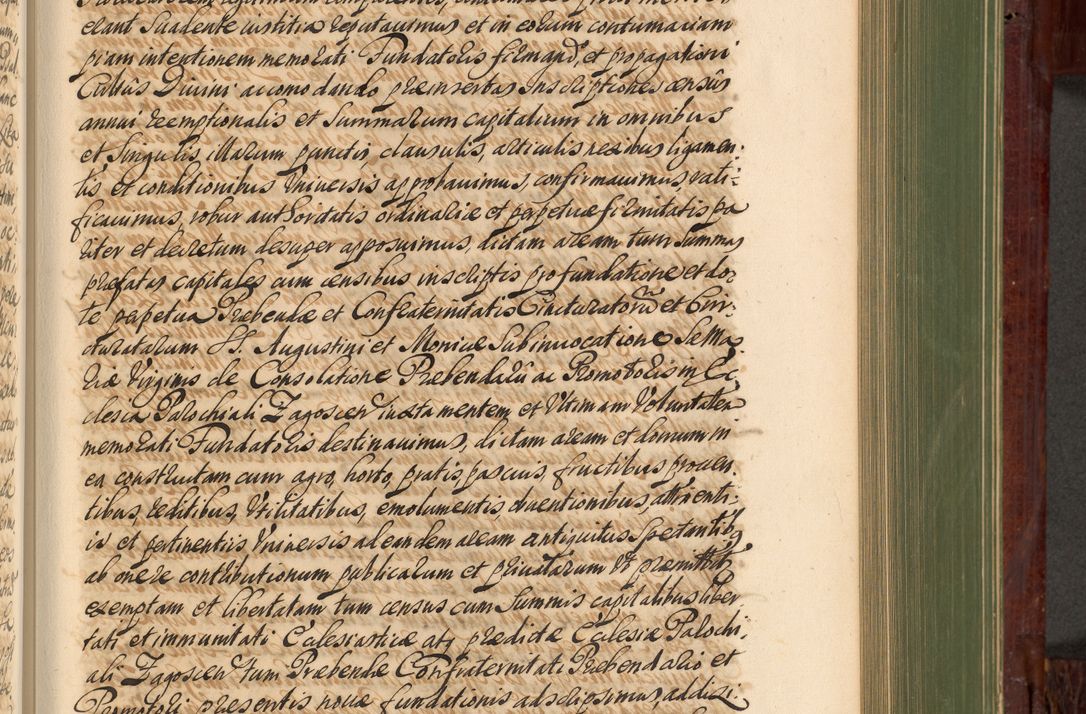 erant Suadente iustitia reputauimus et in eorum contumaciam
piam intentionem memorati Fundatoris firmand, et propagationi
Cultus Diuini accomodando praeinsertas Inscriptiones census
annui reemptionalis et Summarum capitalium in omnibus
et Singulis illarum punctis clausulis, articulis nexibus ligamen-
tis et conditionibus Vniuersis approbauimus, confirmauimus, rati-
ficauimus, robur authoritatis ordinariae et perpetuae firmitatis pa
riter et decretum desuper apposuimus, dictam aream tum Summas
praefatas capitales cum censibus inscriptis pro fundatione et do-
te perpetua Praebendae et Confraternitatis Cincturatorū et Cin-
cturatarum SS. Augustini et Monicae Sub inuocatione S. Ma-
riae Virginis de Consolatione Praebendarii ac Promotoris in Ec
clesia Parochiali Zagoscen iuxta mentem et Vltimam Voluntatem
memorati Fundatoris destinauimus, dictam aream et domum in
ea constructam cum agro, horto, pratis, pascuis, fructibus prouen-
tibus, reditibus, Vtilitatibus, emolumentis obuentionibus, attinenti-
is et pertinentiis Vniuersis ab eandem aream antiquitus Spectantibq
ab onere contributionum publicarum et priuatarum Vt praemittitur
exemptam et libertatam tum census cum Summis capitalibus liber
tati et immunitati Ecclesiasticae atq praedictae Ecclesiae Parochi-
ali Zagoscen tum Praebendae Confraternitati Praebendario et
Promotori praesentis nouae fundationis adscripsimus, addixi-